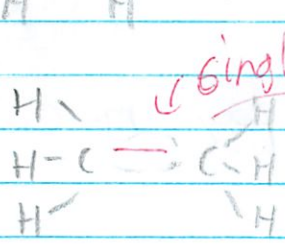 H H
singl
H \ H
H - C — C - H
H / \ H